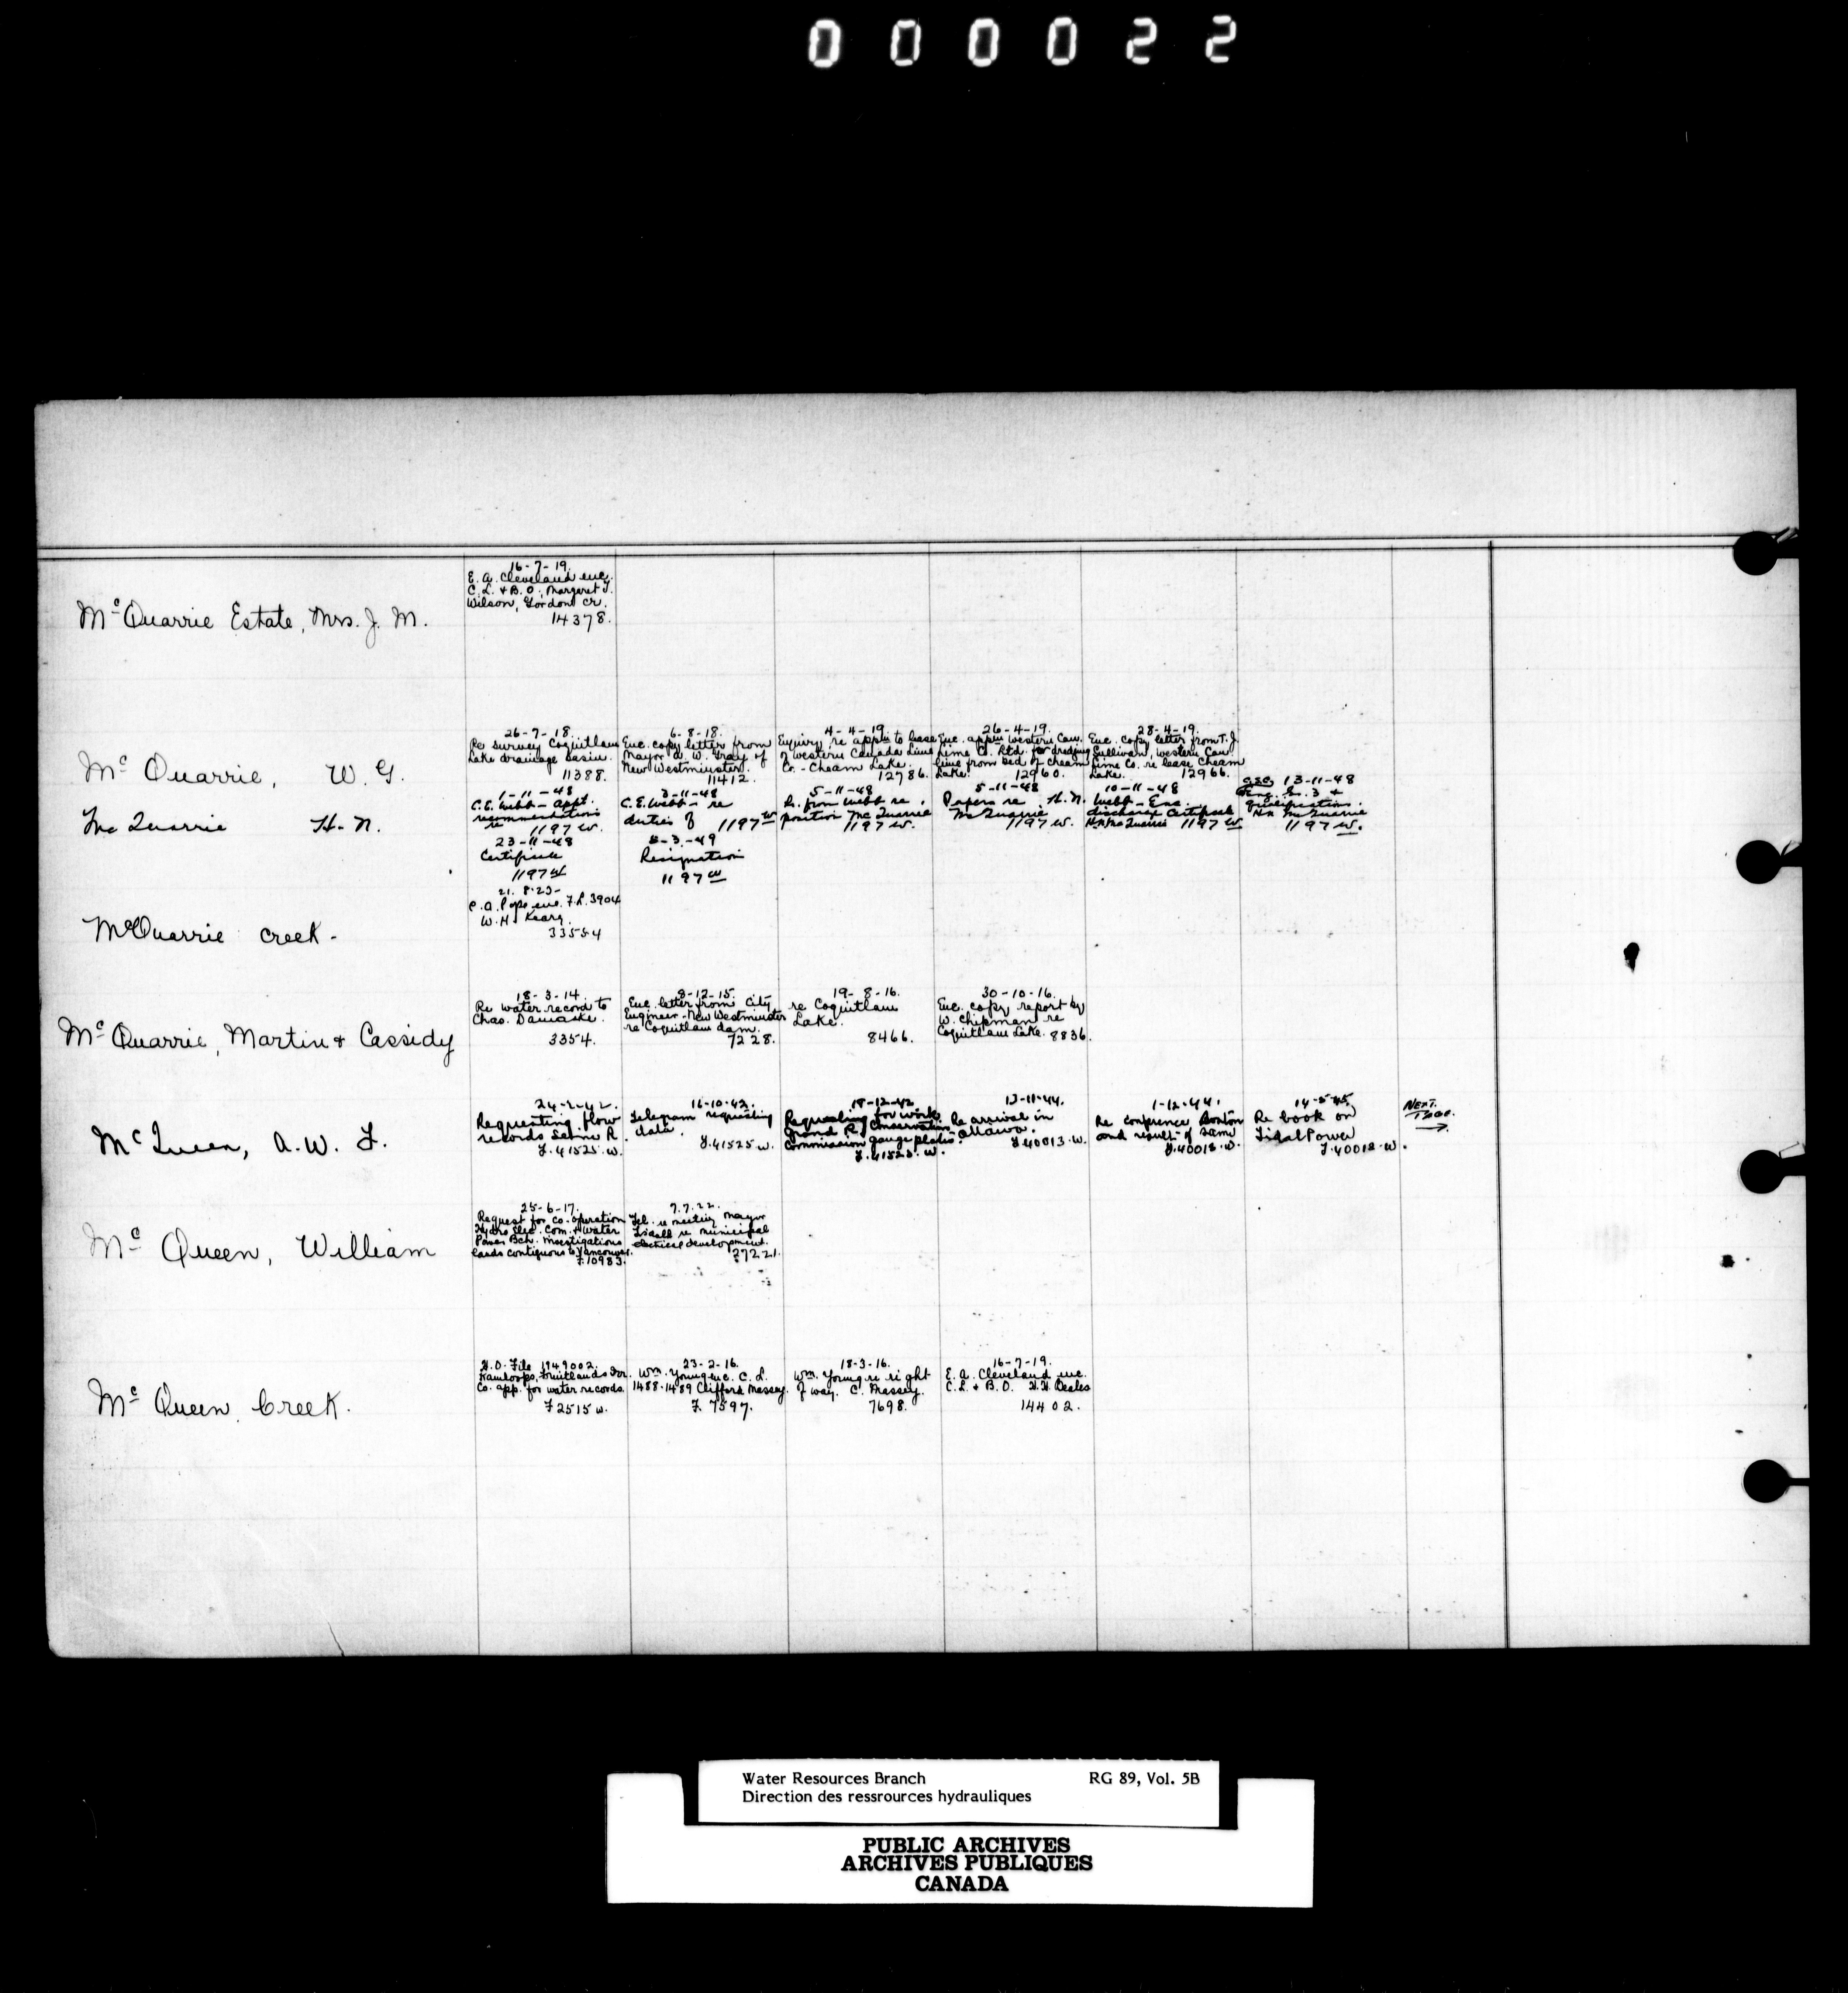 000022
McQuarrie Estate, Mrs. J. M.
16-7-19.
E. A. Cleveland enc.
C. L. & B. O., Margaret J.
Wilson, Gordon Cr.
14378.
McQuarrie, W. G.
26-7-18.
Re survey Coquitlam
Lake drainage basin.
11388.
6-8-18.
Enc. copy letter from
Mayor A. W. Gray of
New Westminster.
11412.
4-4-19.
Enquiry re appln to lease
of Western Canada Lime
Co. - Cheam Lake.
12786.
26-4-19.
Enc. appln Western Can.
Lime Co. Ltd. for dredging
lime from bed of Cheam
Lake. 12960.
28-4-19.
Enc. copy letter from T. J.
Sullivan, Western Can.
Lime Co. re lease Cheam
Lake. 12966.
McQuarrie H. N.
1-11-48
C. E. Webb - appt.
recommendations
re 1197 W.
3-11-48
C. E. Webb - re
duties of 1197 W
5-11-48
from Webb re
position McQuarrie
1197 W.
5-11-48
Papers re H. N.
McQuarrie
1197 W.
10-11-48
Webb - Enc.
discharge certificate
H N McQuarrie 1197 W
CSC 13-11-48
Eng. Gr. 3 &
qualifications.
H N McQuarrie
1197 W.
23-11-48
Certificate
1197 W
8-3-49
Resignation
1197 W
McQuarrie Creek.
21. 8. 23-
C. A. Pope enc. F.L. 3904
W. H. Keary.
33554
McQuarrie, Martin & Cassidy
18-3-14.
Re water record to
Chas.
3354.
8-12-15.
Enc. letter from City
Engineer - New Westminster
re Coquitlam dam.
7228.
19-8-16.
re Coquitlam
Lake.
8466.
30-10-16.
Enc. copy report by
W. Chipman re
Coquitlam Lake. 8836.
McQueen, A. W. F.
24-2-42.
Requesting flow
records R.
F. 41525. W.
16-10-42.
Telegram requesting
data.
F. 41525 W.
18-12-42
Requesting for work
Grand R. Conservation
Commission gauge plates.
F. 41525. W.
13-11-44.
Re arrival in
Ottawa.
F 40013. W.
1-12-44.
Re conference Boston
and result of same
F. 40013. W.
14-5-45.
Re book on
Tidal Power
F. 40013. W.
NEXT.
PAGE.
→
McQueen, William
25-6-17.
Request for co-operation
Hydro Elec. Com. & Water
Power Bch. investigations
lands contiguous to Vancouver.
F. 10983.
7.7.22.
Tel. re meeting Mayor
Tisdall re municipal
electrical development.
27221.
McQueen Creek.
H. O. File 1949002.
Kamloops Fruitlands Irr.
Co. app. for water records.
F 2515 W.
23-2-16.
Wm. Young enc. C. L.
1488-1489 Clifford Massey.
F. 7597.
18-3-16.
Wm. Young re right
of way. C. Massey.
7698.
16-7-19.
E. A. Cleveland enc.
C. L. & B. O. H. H. Beales
14402.
Water Resources Branch RG 89, Vol. 5B
Direction des ressrources hydrauliques
PUBLIC ARCHIVES
ARCHIVES PUBLIQUES
CANADA